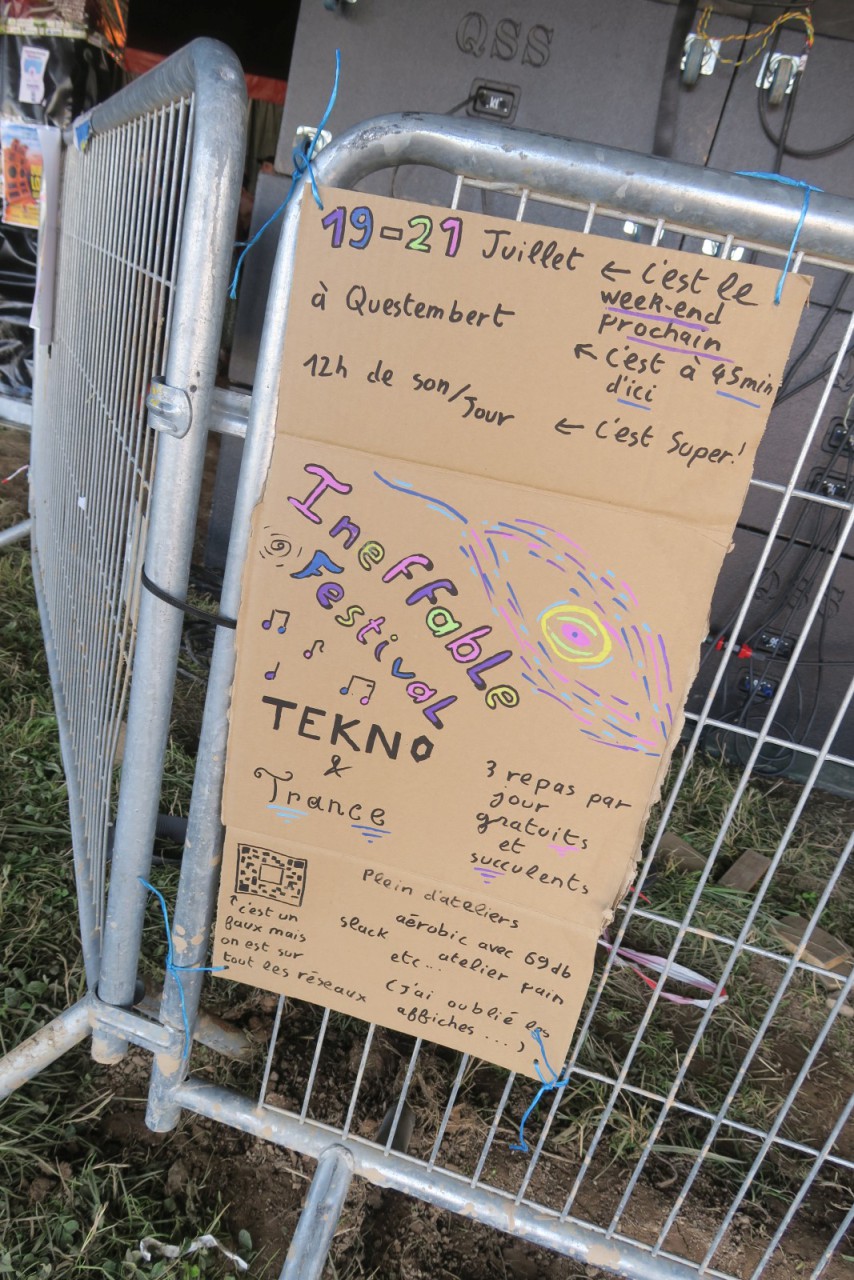 QSS
19-21 Juillet ← c'est le
week-end
prochain
à Questembert ↖ c'est à 45min
d'ici
12h de son/jour ← c'est super!
Ineffable
Festival
TEKNO
&
Trance
3 repas par
jour
gratuits
et
succulents
↑ c'est un
faux mais
on est sur
tout les réseaux
Plein d'ateliers
aérobic avec 69db
slack atelier pain
etc...
(j'ai oublié les
affiches ...)
QSS